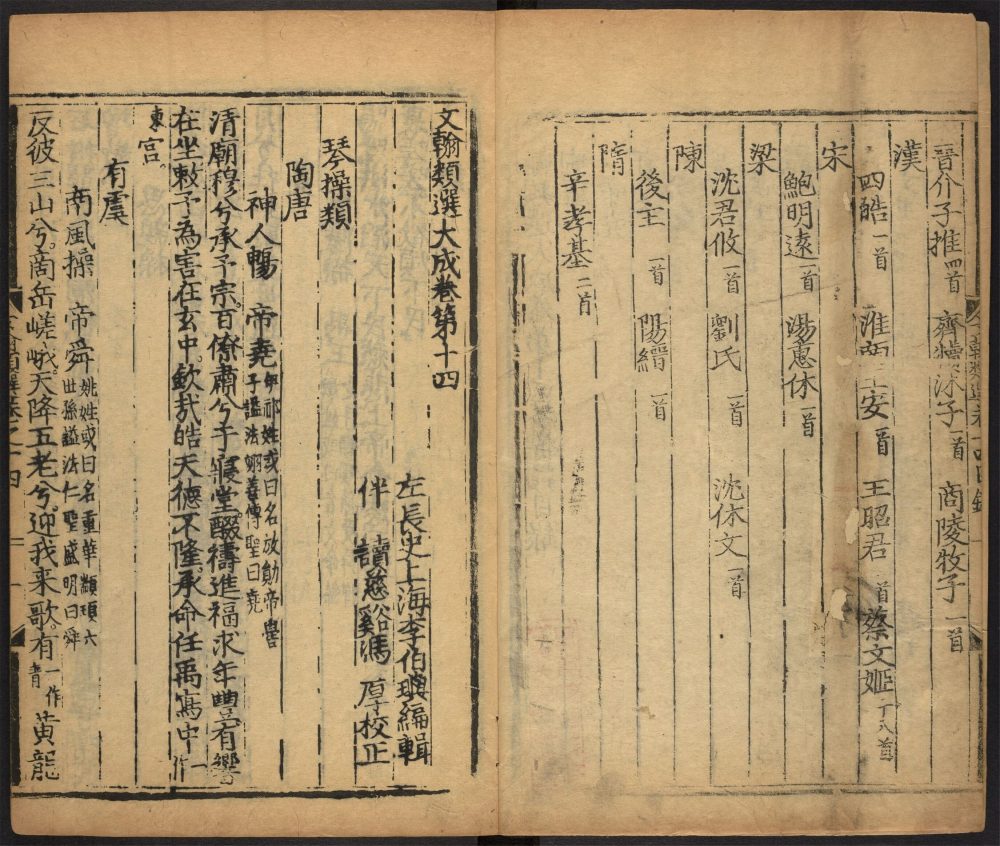 晉介子推四首 齊犢沐子一首 商陵牧子一首
漢
四皓一首 淮南王安一首 王昭君一首 蔡文姬十八首
宋
鮑明遠一首 湯惠休一首
梁
沈君攸一首 劉氏一首 沈休文一首
陳
後主一首 陽縉一首
隋
辛孝基二首
文翰類選大成卷第十四
左長史上海李伯璵編輯
伴讀慈谿馮厚校正
琴操類
陶唐
神人暢 帝堯伊祁姓或曰名放勛帝嚳子謚法翊善傳聖曰堯
清廟穆兮承予宗百僚肅兮于寢堂醊禱進福求年豐有響
在坐敕予為害在玄中欽哉皓天德不隆承命任禹寫中一作
東宮
有虞
南風操 帝舜姚姓或曰名重華顓頊六世孫謚法仁聖盛明曰舜
反彼三山兮商岳嵯峨天降五老兮迎我来歌有一作青黃龍